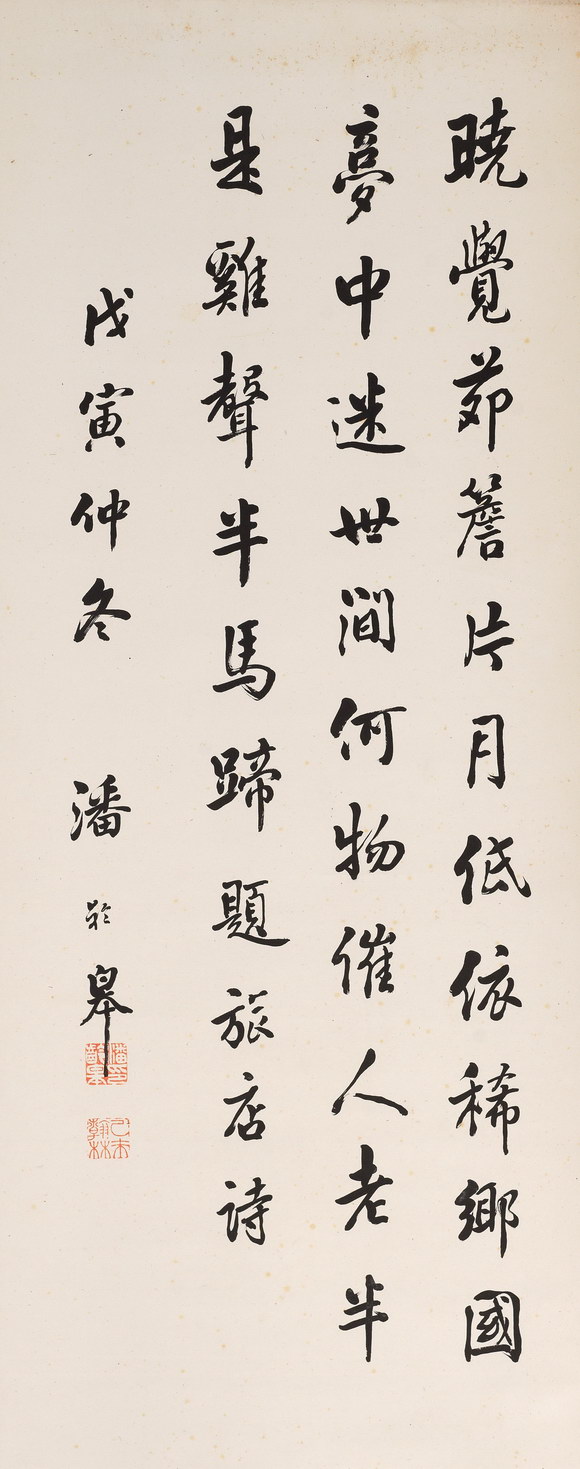 曉覺茆簷片月低依稀鄉國
夢中迷世間何物催人老半
是雞聲半馬蹄題旅店詩
戊寅仲冬 潘齡皋
潘印齡皋
乙未翰林